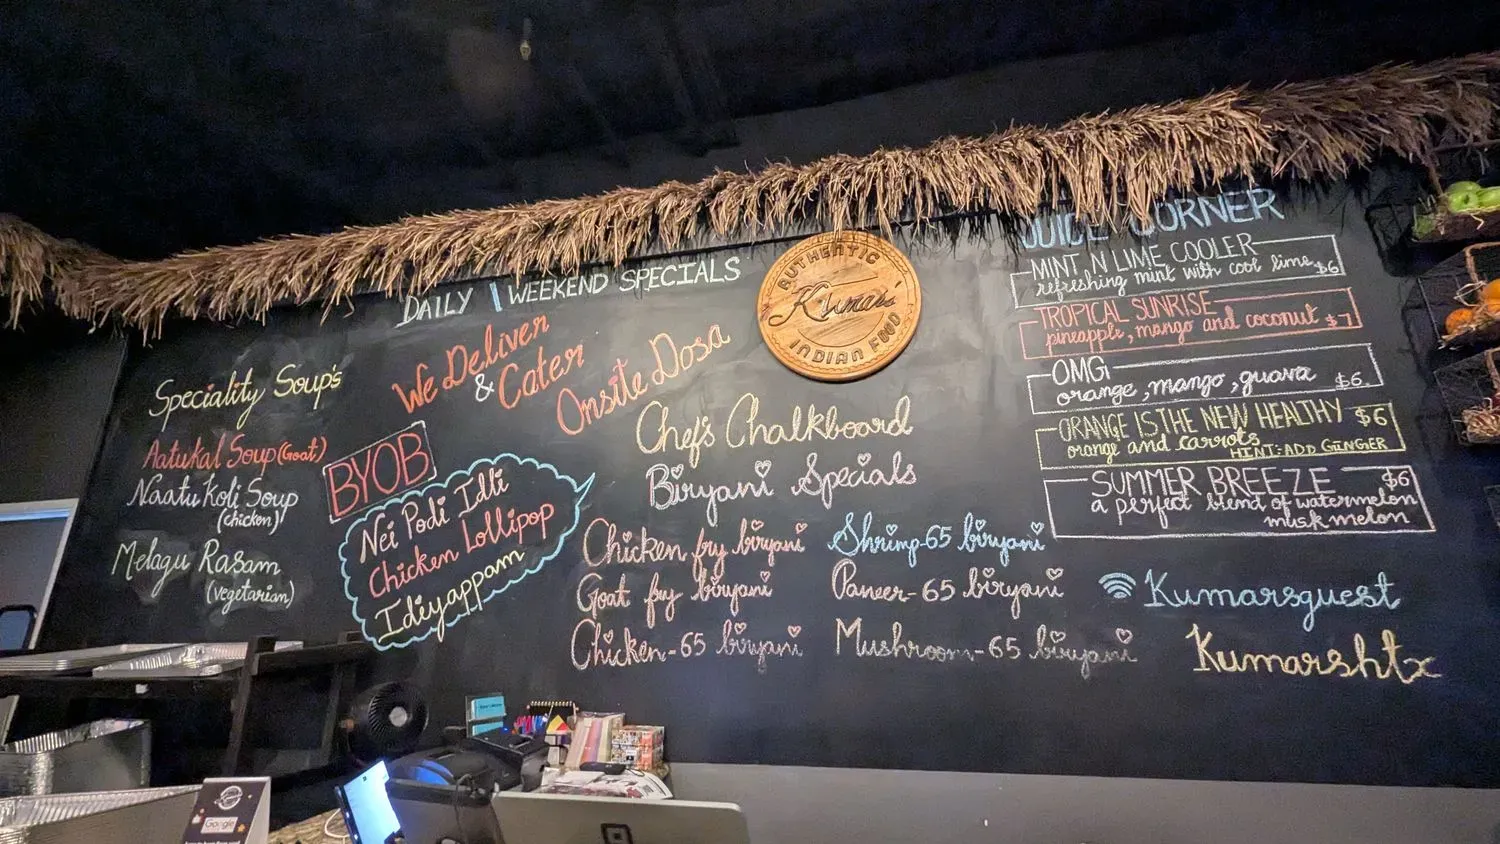 DAILY | WEEKEND SPECIALS
We Deliver
& Cater
Onsite Dosa
Speciality Soup's
Aatukal Soup (Goat)
Naatu Koli Soup
(chicken)
Melagu Rasam
(vegetarian)
BYOB
Nei Podi Idli
Chicken Lollipop
Idiyappam
AUTHENTIC
Kumar's
INDIAN FOOD
Chef's Chalkboard
Biryani Specials
Chicken fry biryani
Goat fry biryani
Chicken-65 biryani
Shrimp-65 biryani
Paneer-65 biryani
Mushroom-65 biryani
JUICE CORNER
MINT N LIME COOLER
refreshing mint with cool lime $6
TROPICAL SUNRISE
pineapple, mango and coconut $7
OMG!
orange, mango, guava $6
ORANGE IS THE NEW HEALTHY $6
orange and carrots
HINT: ADD GINGER
SUMMER BREEZE $6
a perfect blend of watermelon
musk melon
Kumarsguest
Kumarshtx
Google